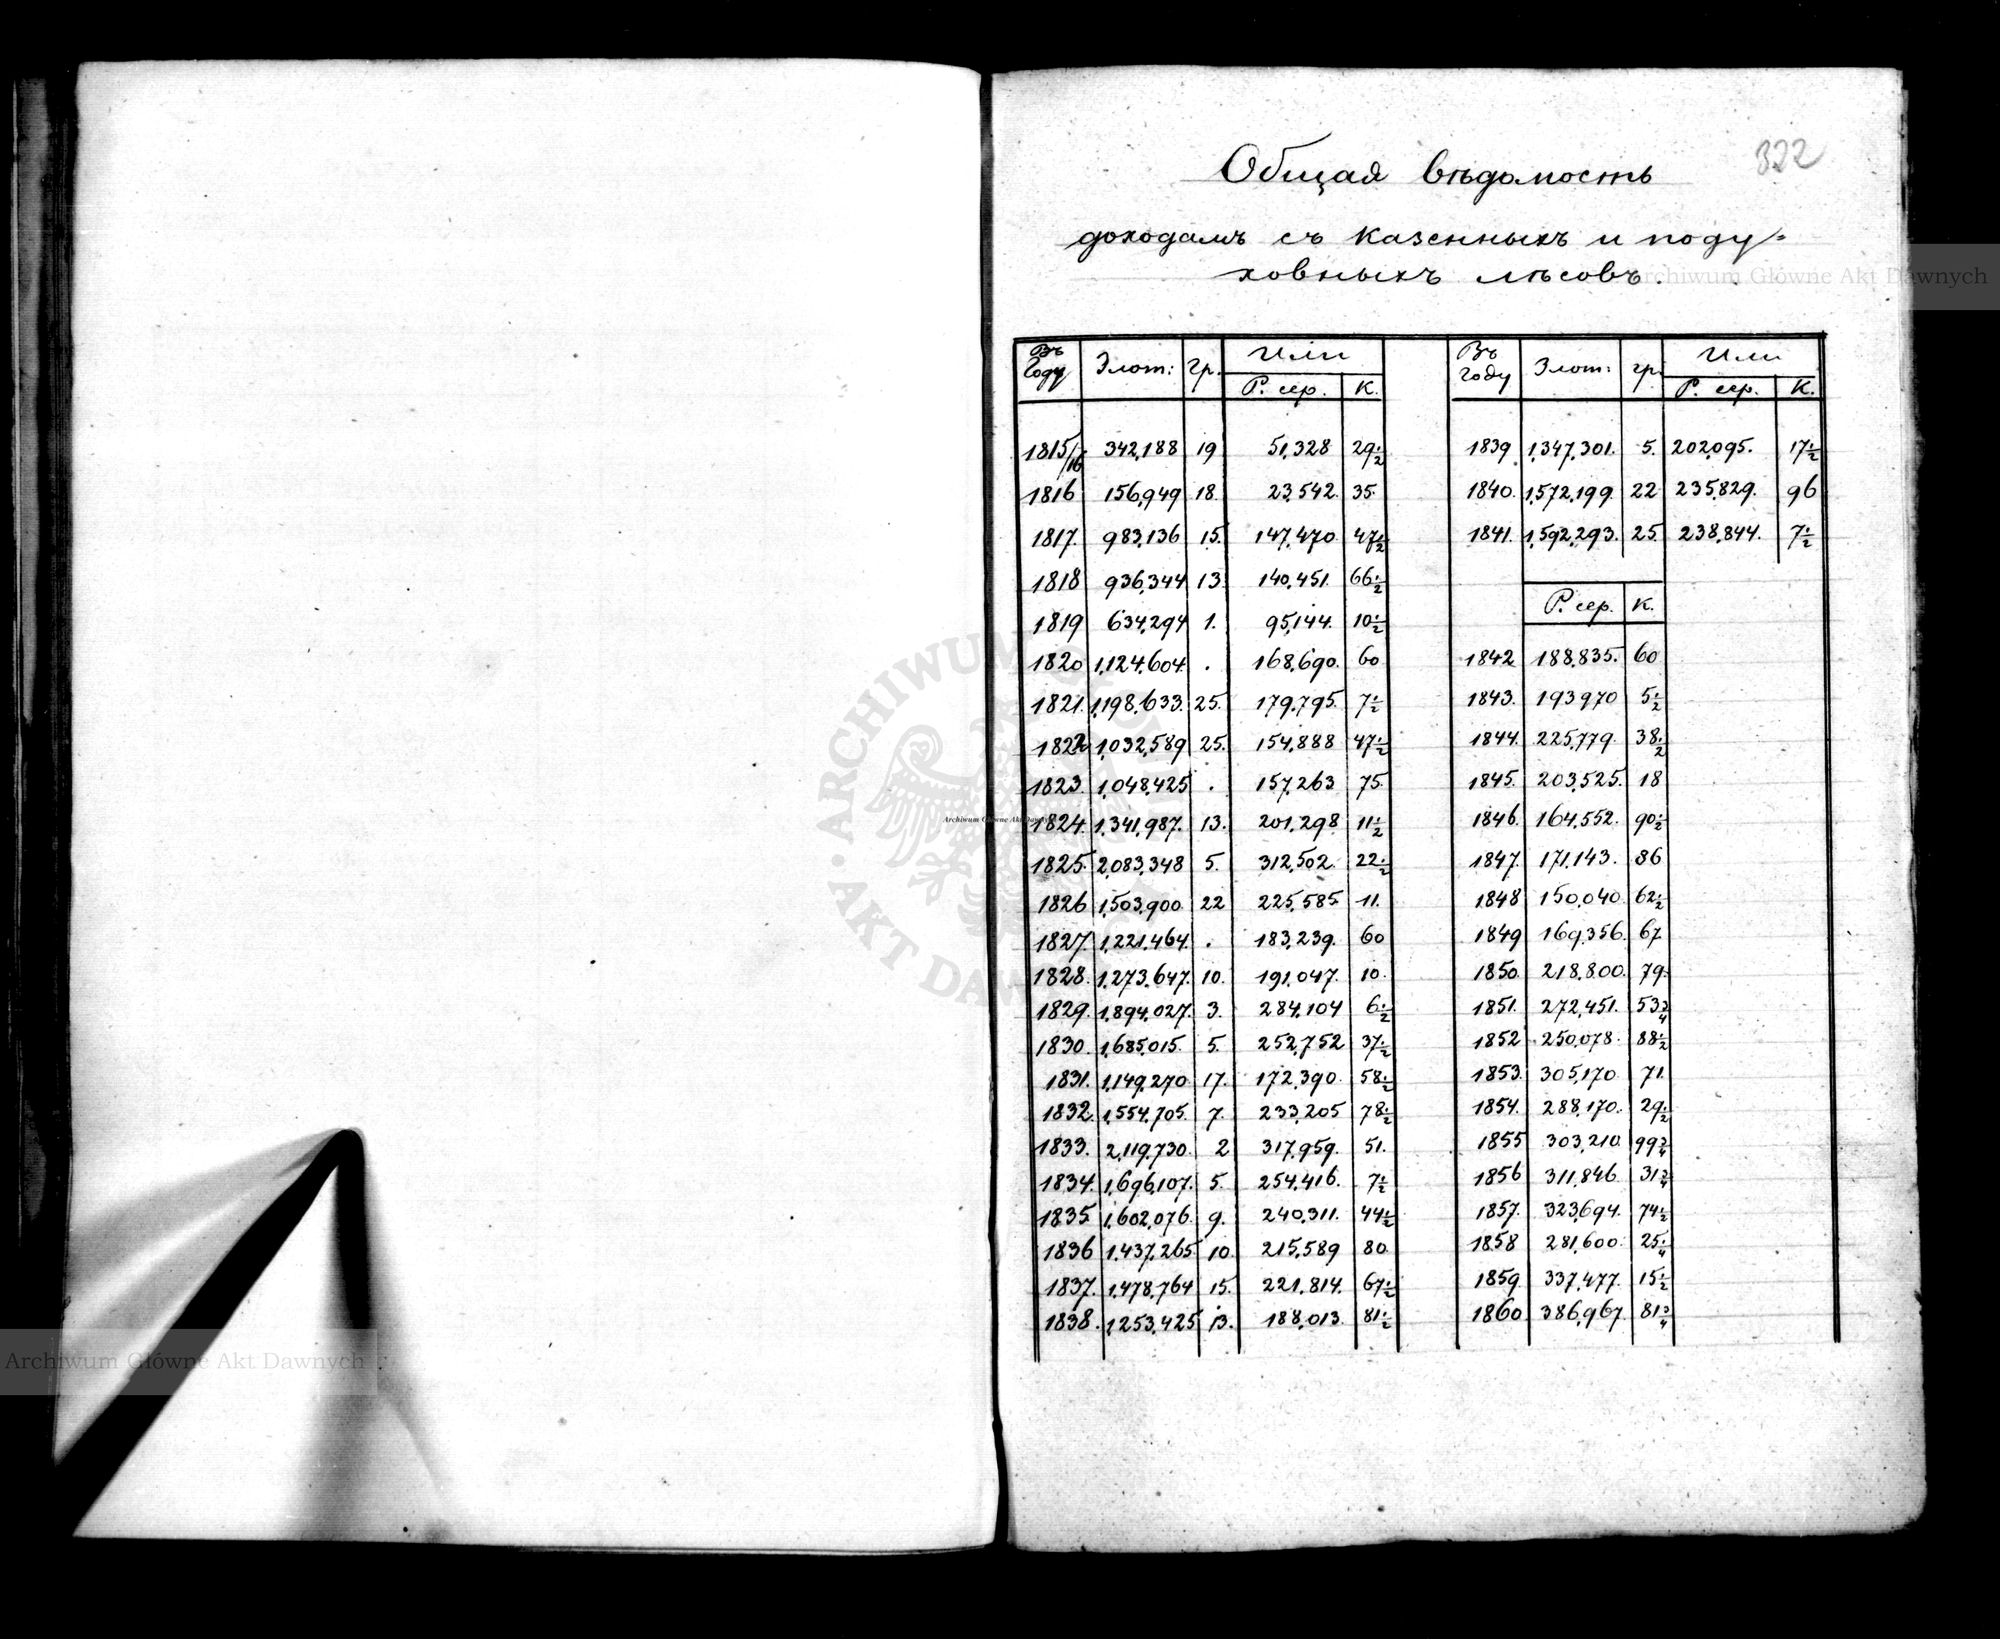 322
Общая вѣдомость
доходамъ съ казенныхъ и поду=
ховныхъ лѣсовъ.
Въ Году | Злот: | гр. | Или Р. сер. | К.
1815/16 | 342,188 | 19 | 51,328 | 29 1/2
1816 | 156,949 | 18. | 23,542. | 35.
1817. | 983,136 | 15. | 147,470 | 47 1/2
1818 | 936,344 | 13. | 140,451. | 66 1/2
1819 | 634,294 | 1. | 95,144. | 10 1/2
1820 | 1,124,604. | . | 168,690. | 60
1821. | 1,198,633. | 25. | 179,795. | 7 1/2
1822 | 1,032,589 | 25. | 154,888 | 47 1/2
1823. | 1,048,425 | . | 157,263 | 75.
1824. | 1,341,987. | 13. | 201,298 | 11 1/2
1825. | 2,083,348 | 5. | 312,502. | 22 1/2
1826 | 1,503,900 | 22 | 225,585 | 11.
1827. | 1,221,464. | . | 183,239. | 60
1828. | 1,273,647. | 10. | 191,047. | 10.
1829. | 1,894,027. | 3. | 284,104 | 6 1/2
1830. | 1,685,015. | 5. | 252,752 | 37 1/2
1831. | 1,149,270 | 17. | 172,390. | 58 1/2
1832. | 1,554,705. | 7. | 233,205 | 78 1/2
1833. | 2,119,730. | 2 | 317,959. | 51.
1834. | 1,696,107. | 5. | 254,416. | 7 1/2
1835 | 1,602,076. | 9. | 240,311. | 44 1/2
1836 | 1,437,265 | 10. | 215,589 | 80
1837. | 1,478,764 | 15. | 221,814. | 67 1/2
1838. | 1,253,425 | 13. | 188,013. | 81 1/2
Въ году | Злот: | гр. | Или Р. сер. | К.
1839 | 1,347,301. | 5. | 202,095. | 17 1/2
1840. | 1,572,199. | 22 | 235,829. | 96
1841. | 1,592,293. | 25. | 238,844. | 7 1/2
Р. сер. | К.
1842 | 188,835. | 60
1843. | 193970 | 5 1/2
1844. | 225,779. | 38 1/2
1845. | 203,525. | 18
1846. | 164,552. | 90 1/2
1847. | 171,143. | 86
1848 | 150,040. | 62 1/2
1849 | 169,356. | 67
1850. | 218,800. | 79.
1851. | 272,451. | 53 3/4
1852 | 250,078. | 88 1/2
1853. | 305,170. | 71.
1854. | 288,170. | 29 1/2
1855 | 303,210. | 99 3/4
1856 | 311,846 | 31 3/4
1857. | 323,694. | 74 1/2
1858 | 281,600. | 25 1/4
1859. | 337,477. | 15 1/2
1860 | 386,967. | 81 3/4
Archiwum Główne Akt Dawnych
Archiwum Główne Akt Dawnych
Archiwum Główne Akt Dawnych